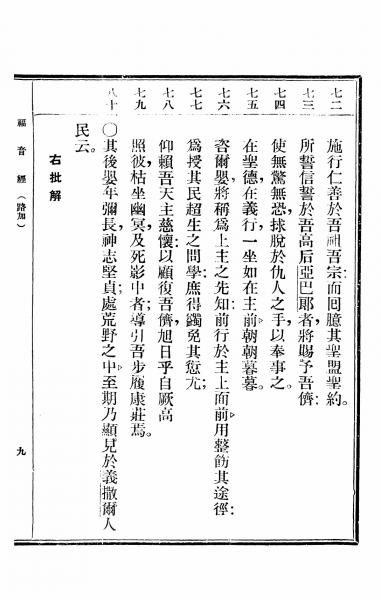 七二 施行仁善於吾祖吾宗;而囘臆其聖盟聖約。
七三 所誓信誓於吾高后亞巴郎者,將賜予吾儕;
七四 使無驚無恐,拯脫於仇人之手,以奉事之。
七五 在聖德,在義行,一坐如在主前,朝朝暮暮。
七六 咨爾嬰,將稱爲上主之先知;前行於主上面前,用整飭其途徑;
七七 爲授其民超生之問學,庶得蠲免其愆尤;
七八 仰賴吾天主慈懷;以顧復吾儕,旭日乎,自厥高
七九 照彼枯坐幽冥,及死影中者;導引吾步履康莊焉。
八十 〇其後嬰年彌長,神志堅貞;處荒野之中,至期乃顯見於義撒爾人
民云。
右批解
福音經(路加)
九